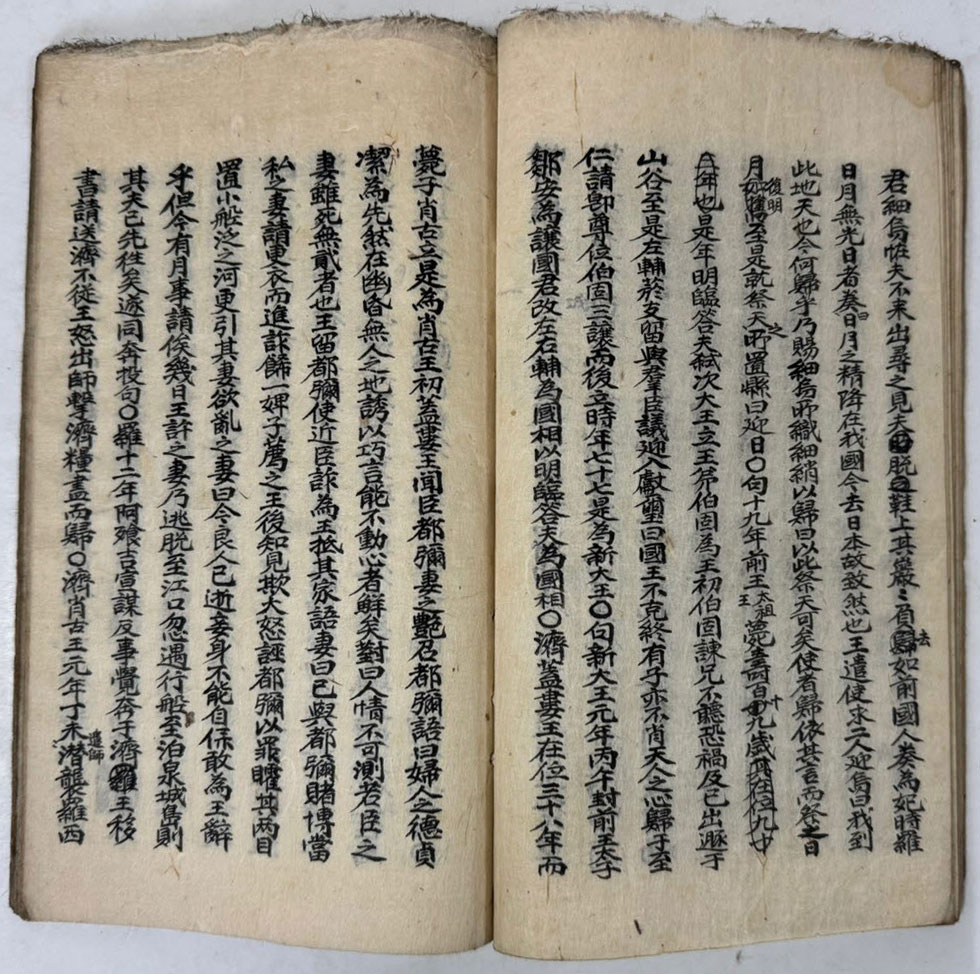 君細烏恠夫不来出尋之見夫脱鞋上其巖〻負去如前國人奏為妃時羅
日月無光日者奏曰日月之精降在我國今去日本故致然也王遣使求二人迎烏曰我到
此地天也今何歸乎乃賜細烏所織細綃以歸曰以此祭天可矣使者歸依其言而祭之日
月復明如舊至是號祭天之所置縣曰迎日〇句十九年前王太祖王薨壽百十九歲其在位九十
三年也是年明臨答夫弑次大王立王弟伯固為王初伯固諫兄不聽恐禍及已出遯于
山谷至是左輔菸支留與羣臣議迎入獻璽曰國王不克終有子亦不肖天人之心歸于至
仁請卽尊位伯固三讓而後立時年七十七是為新大王〇句新大王元年丙午封前王太子
鄒安為讓國君改左右輔為國相以明臨答夫為國相〇濟蓋婁王在位三十八年而
薨子肖古立是為肖古王初蓋婁王聞臣都彌妻之艷召都彌語曰婦人之德貞
潔為先然在幽昏無人之地誘以巧言能不動心者鮮矣對曰人情不可測若臣之
妻雖死無貳者也王留都彌使近臣詐為王抵其家語妻曰已與都彌賭博當
私之妻請更衣而進詐餙一婢子薦之王後知見欺大怒誣都彌以罪矐其兩目
置小船泛之河更引其妻欲亂之妻曰今良人已逝妾身不能自保敢為王辭
乎但今有月事請俟幾日王許之妻乃逃脱至江口忽遇行船至泊泉城島則
其夫已先徃矣遂同奔投句〇羅十二年阿飱吉宣謀反事覺奔于濟羅王移
書請送濟不從王怒出師擊濟糧盡而歸〇濟肖古王元年丁未遣師潜襲羅西